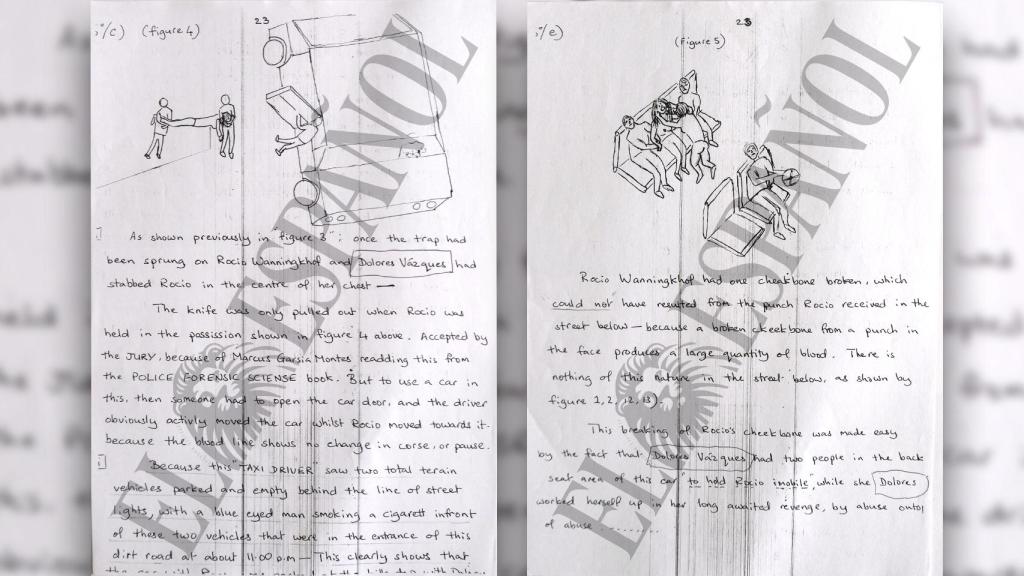 ;°/c) (figure 4)
23
As shown previously in "figure 3"; once the trap had
been sprung on Rocio Wanningkhof and Dolores Vázques had
stabbed Rocio in the centre of her chest —
The knife was only pulled out when Rocio was
held in the possission shown in Figure 4 above. Accepted by
the JURY, because of Marcus Garsia Montes readding this from
the POLICE FORENSIC SCIENSE book. But to use a car in
this, then someone had to open the car door, and the driver
obviously activly moved the car whilst Rocio moved towards it-
because the blood line shows no change in corse, or pause.
Because this "TAXI DRIVER" saw two total terain
vehicles parked and empty behind the line of street
lights, with a blue eyed man smoking a cigarett infront
of these two vehicles that were in the entrance of this
dirt road at about 11.00 p.m — This clearly shows that
;°/e)
23
(figure 5)
Rocio Wanningkhof had one cheakbone broken, which
could not have resulted from the punch Rocio received in the
street below — because a broken ckeekbone from a punch in
the face produces a large quantity of blood. There is
nothing of this nature in the street below, as shown by
figure 1, 2, 12, 13)
This breaking of Rocio's cheekbone was made easy
by the fact that Dolores Vázques had two people in the back
seat area of this car to hold Rocio imobile, while she Dolores
worked herself up in her long awaited revenge, by abuse ontol
of abuse ........
EL ESPAÑOL
EL ESPAÑOL